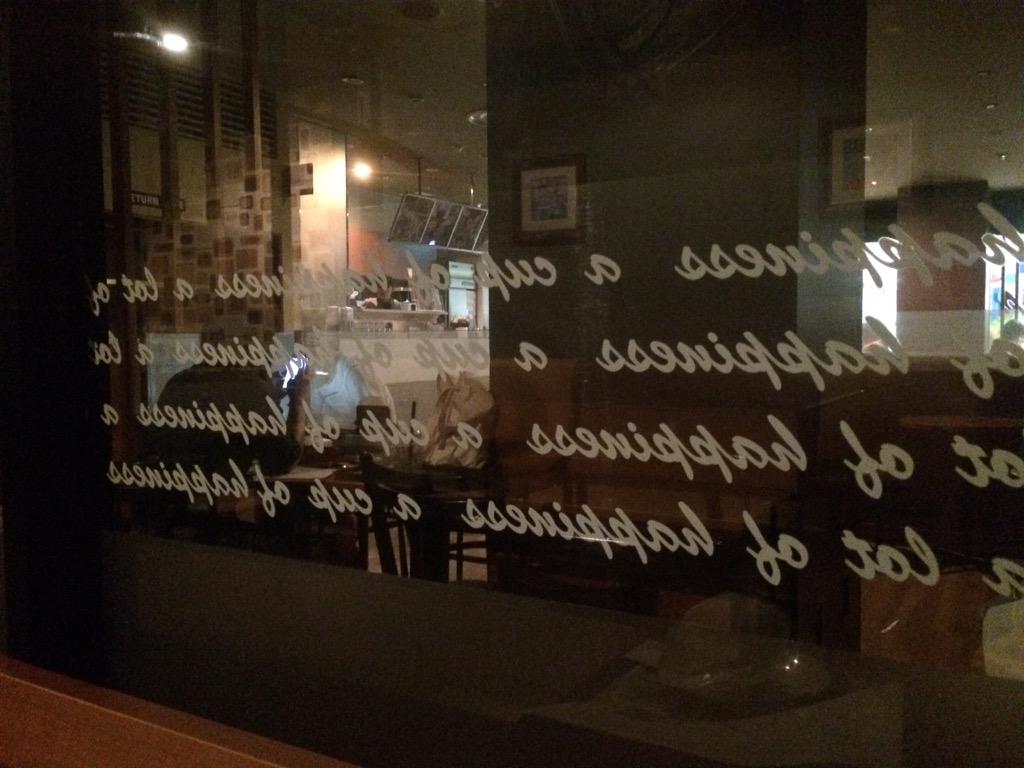 ETURN
happiness a cup of happiness a lot of
of happiness a cup of happiness a lot
lot of happiness a cup of happiness a
a lot of happiness a cup of happiness